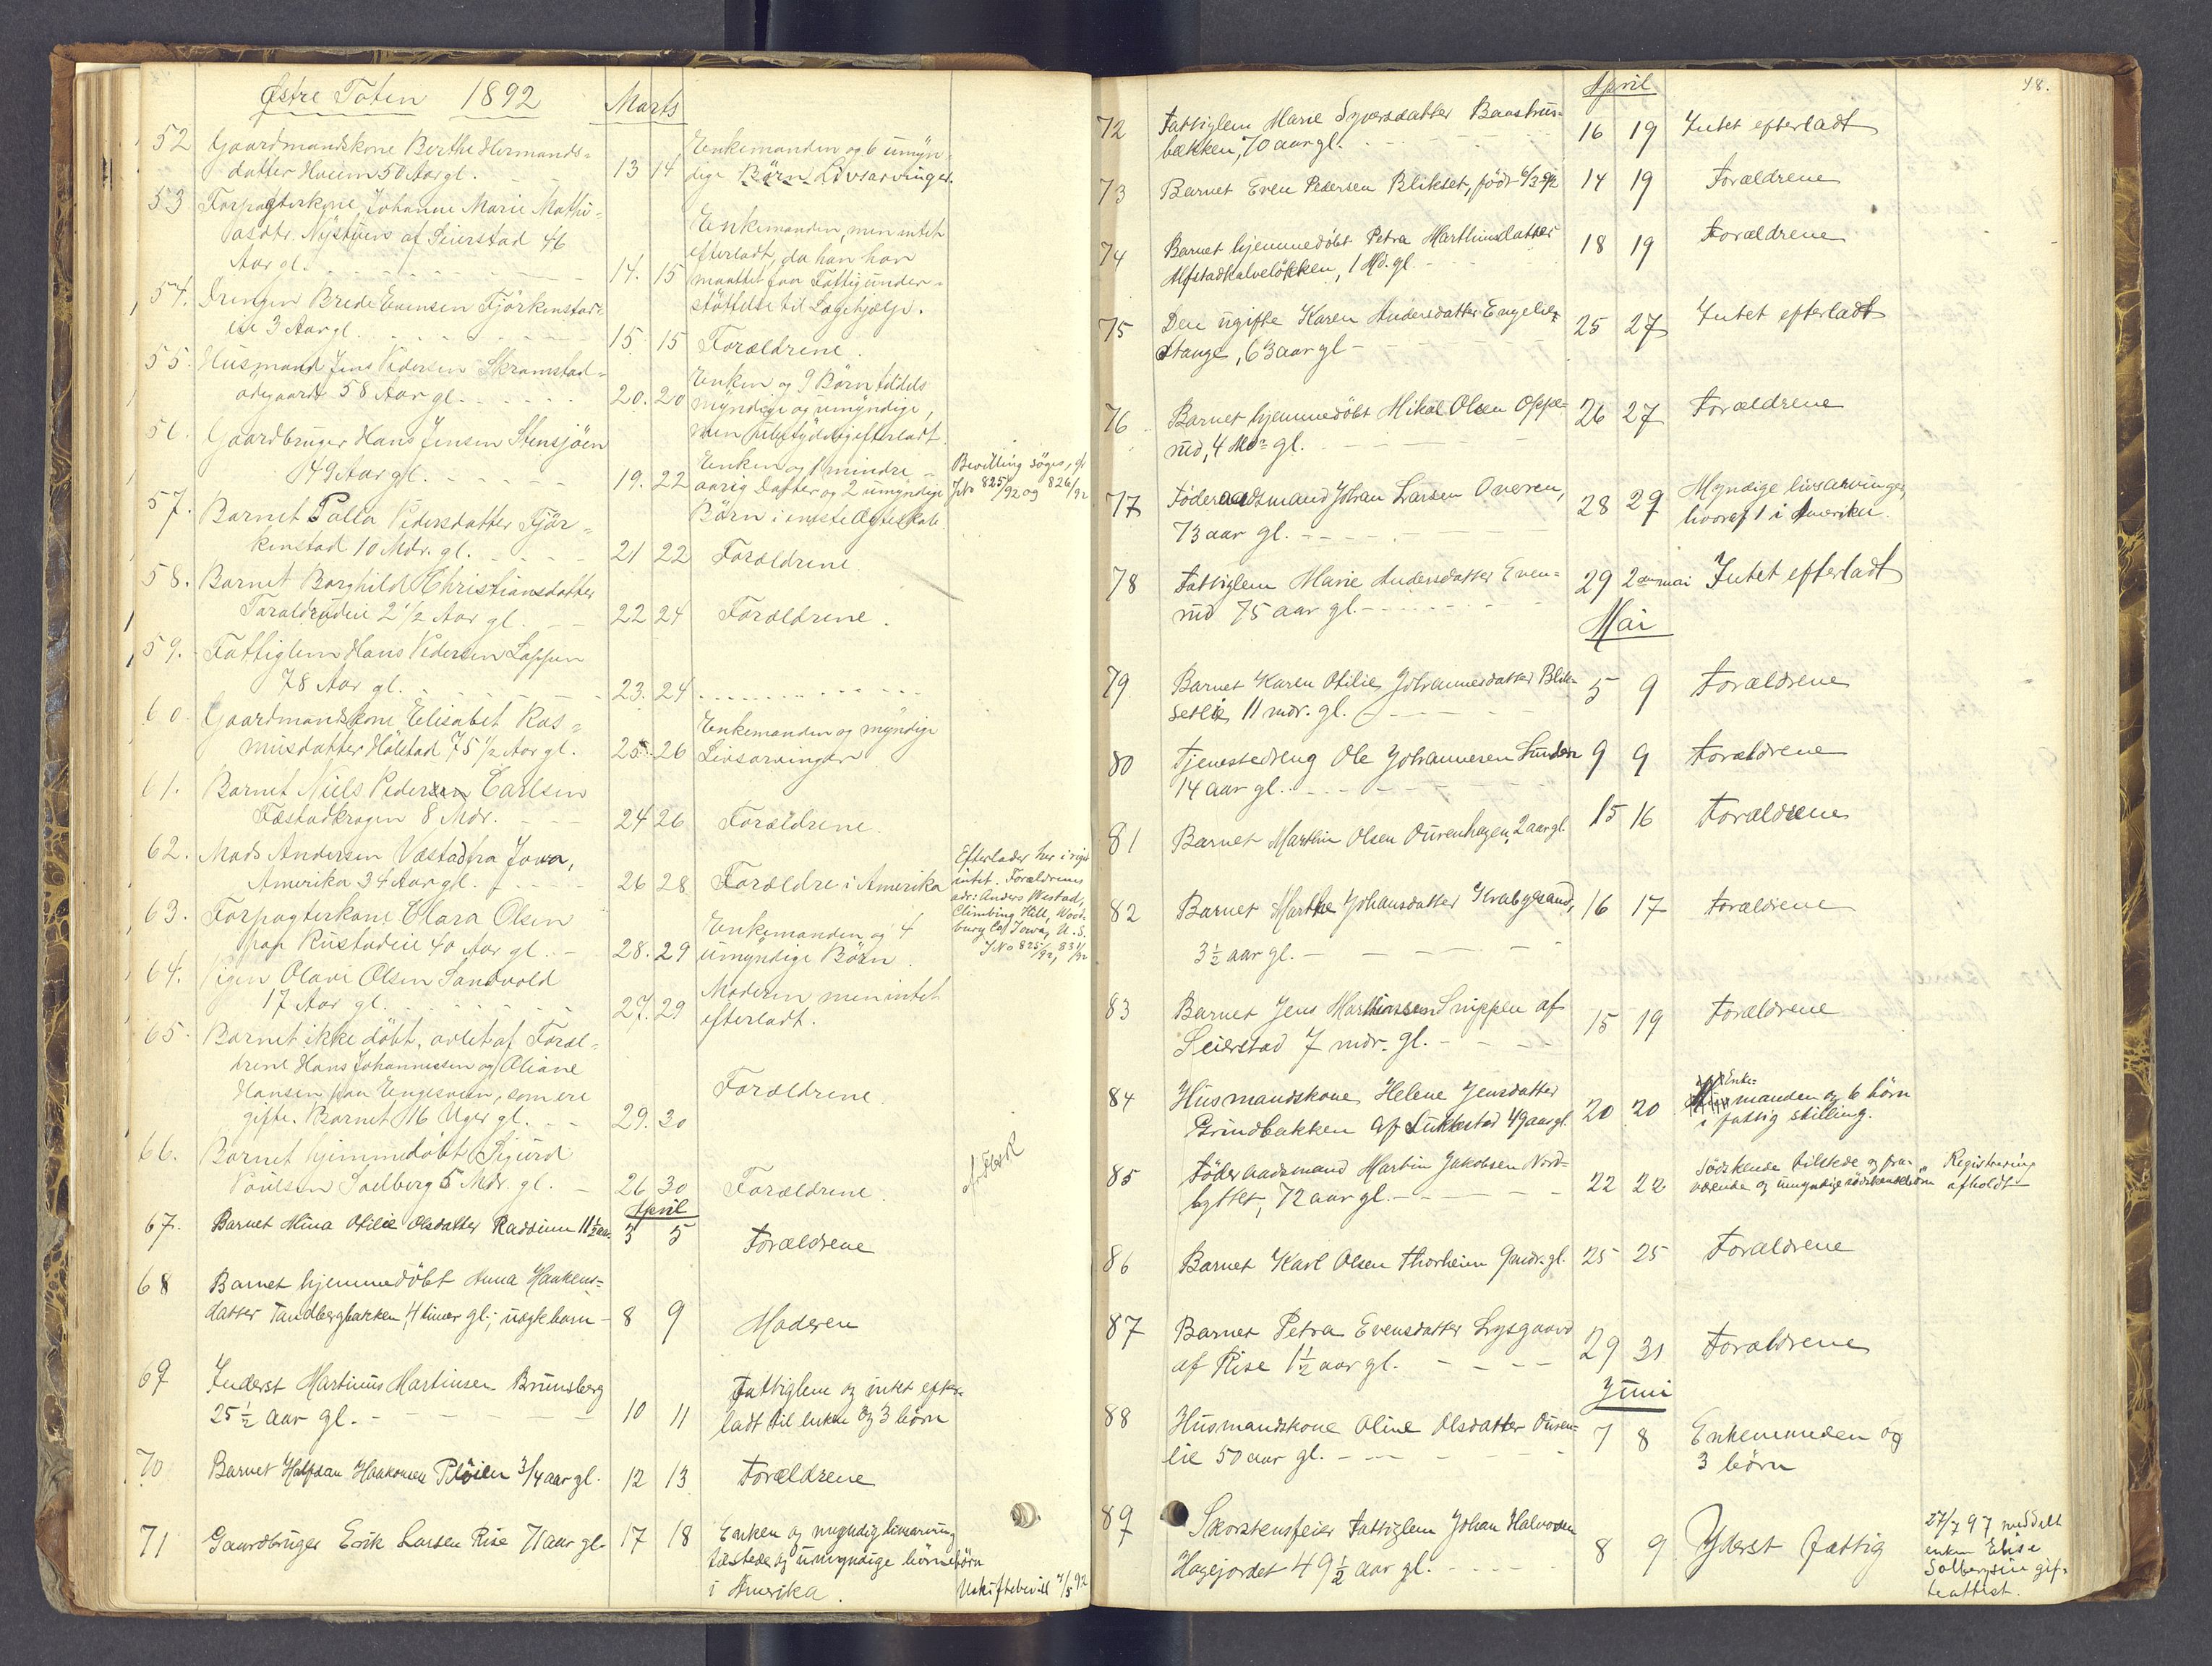 Østre Toten 1892
Marts
52 Gaardmandskone Berthe Hermands-
datter Hveem 50 Aar gl. 13 14
Enkemanden og 6 umyn-
dige Börn Livsarvinger.
53 Forpagterkone Johanne Marie Mathi-
asdtr. Nystuen af Seierstad 46
Aar gl. 14. 15
Enkemanden, men intet
efterladt, da han har
maattet faa Fattigunder-
støttelse til Lægehjælp.
54. Drengen Brede Evensen Fjörkenstad-
eie 3 Aar gl. 15. 15 Forældrene.
55. Husmand Jens Pedersen Skramstad-
ødegaard 58 Aar gl. 20. 20
Enken og 9 Børn tildels
myndige og umyndige,
men ubetydelig efterladt.
56. Gaardbruger Hans Jensen Stensjöen
49 Aar gl. 19. 22
Enken og 1 mindre-
aarig Datter og 2 umyndige
Börn i enste Ægteskab.
Bevilling söges, cfr
J No 825/92 og 826/92
57. Barnet Palla Pedersdatter Fjör-
kenstad 10 Mdr. gl. 21 22 Forældrene.
58. Barnet Borghild Christiansdatter
Taraldrudeie 2 1/2 Aar gl. 22 24 Forældrene.
59. Fattiglem Hans Pedersen Lappen
78 Aar gl. 23. 24
60. Gaardmandskone Elisabet Ras-
musdatter Hölstad 75 1/2 Aar gl. 25. 26
Enkemanden og myndige
Livsarvinger
61. Barnet Niels Pedersen Carlsen
Fæstadkrogen 8 Mdr. 24 26 Forældrene.
62. Mads Andersen Væstad fra Jowa,
Amerika 34 Aar gl. 26 28 Forældre i Amerika
Efterlader her i riget
intet. Forældrenes
adr: Anders Westad,
Climbing Hill, Wood-
bury Co, Iowa, U.S.
J No 825/92, 831/92
63. Forpagterkone Clara Olsen
paa Rustadeie 40 Aar gl. 28. 29
Enkemanden og 4
umyndige Börn.
64. Pigen Olave Olsen Sandvold
17 Aar gl. 27. 29
Moderen men intet
efterladt.
65. Barnet, ikke döbt, avlet af Foræl-
drene Hans Johannessen og Oliane
Hansen paa Engesveen, som ere
gifte. Barnet 16 Uger gl. 29. 30
Forældrene.
66. Barnet hjemmedöbt Sigurd
Poulsen Soelberg 5 Mdr. gl. 26 30 Forældrene.
April
67. Barnet Mina Otilie Olsdatter Radsum 11 1/2 aar 3 5 Forældrene
68 Barnet hjemmedöbt Anna Haakens-
datter Tandbergbakken, 4 timer gl.; uægte barn 8 9 Moderen
69 Inderst Martinus Martinsen Brunsberg
25 1/2 aar gl. 10 11
Fattiglem og intet efter-
ladt til enken og 3 börn
70 Barnet Halfdan Haakonsen Plöien 3/4 aar gl. 12 13 Forældrene
71 Gaardbruger Erik Larsen Rise 71 aar gl. 17 18
Enken og myndig livsarving
tilstede og umyndige börnebörn
i Amerika.
Uskiftebevill 4/5 92
48.
April
72 Fattiglem Marie Syversdatter Baastrus-
bækken, 70 aar gl. 16 19 Intet efterladt
73 Barnet Even Pedersen Blikset, född 6/3 92 14 19 Forældrene
74 Barnet hjemmedöbt Petra Marthinsdatter
Alfstadkalvelökken, 1 Md. gl. 18 19 Forældrene
75 Den ugifte Karen Andersdatter Engelie-
Stange, 63 aar gl 25 27 Intet efterladt
76 Barnet hjemmedöbt Mikal Olsen Oppe-
rud, 4 Mdr gl. 26 27 Forældrene
77 Föderaadsmand Johan Larsen Overen,
73 aar gl. 28 29
Myndige livsarvinger,
hvoraf 1 i Amerika.
78 Fattiglem Marie Andersdatter Even-
rud 75 aar gl. 29 2den mai Intet efterladt
Mai
79 Barnet Karen Otilie Johannesdatter Blik-
setlie, 11 mdr. gl. 5 9 Forældrene
80 Tjenestedreng Ole Johannesen Sunden
14 aar gl. 9 9 Forældrene
81 Barnet Marthin Olsen Ourenhagen, 2 aar gl. 15 16 Forældrene
82 Barnet Marthe Johansdatter Krabysand,
3 1/2 aar gl. 16 17 Forældrene
83 Barnet Jens Marthinssen Snippen af
Seierstad 7 mdr. gl. 15 19 Forældrene
84 Husmandskone Helene Jensdatter
Grindbakken af Lukkestad 49 aar gl. 20 20
Enke-
manden og 6 börn
i fattig stilling.
85 Föderaadsmand Martin Jakobsen Nord-
bytter, 72 aar gl. 22 22
Södskende tilstede og fra-
værende og umyndige södskendebörn
Registrering
afholdt
86 Barnet Karl Olsen Thorheim 9 mdr. gl. 25 25 Forældrene
87 Barnet Petra Evensdatter Lysgaard
af Rise 1 1/2 aar gl. 29 31 Forældrene
Juni
88 Husmandskone Oline Olsdatter Ouren-
lie 50 aar gl. 7 8
Enkemanden og
3 börn
89 Skorstensfeier Fattiglem Johan Halvorsen
Hagejordet 49 1/2 aar gl. 8 9 Yderst fattig
27/7 97 meddelt
enken Elise
Solbergseie gif-
teattest.